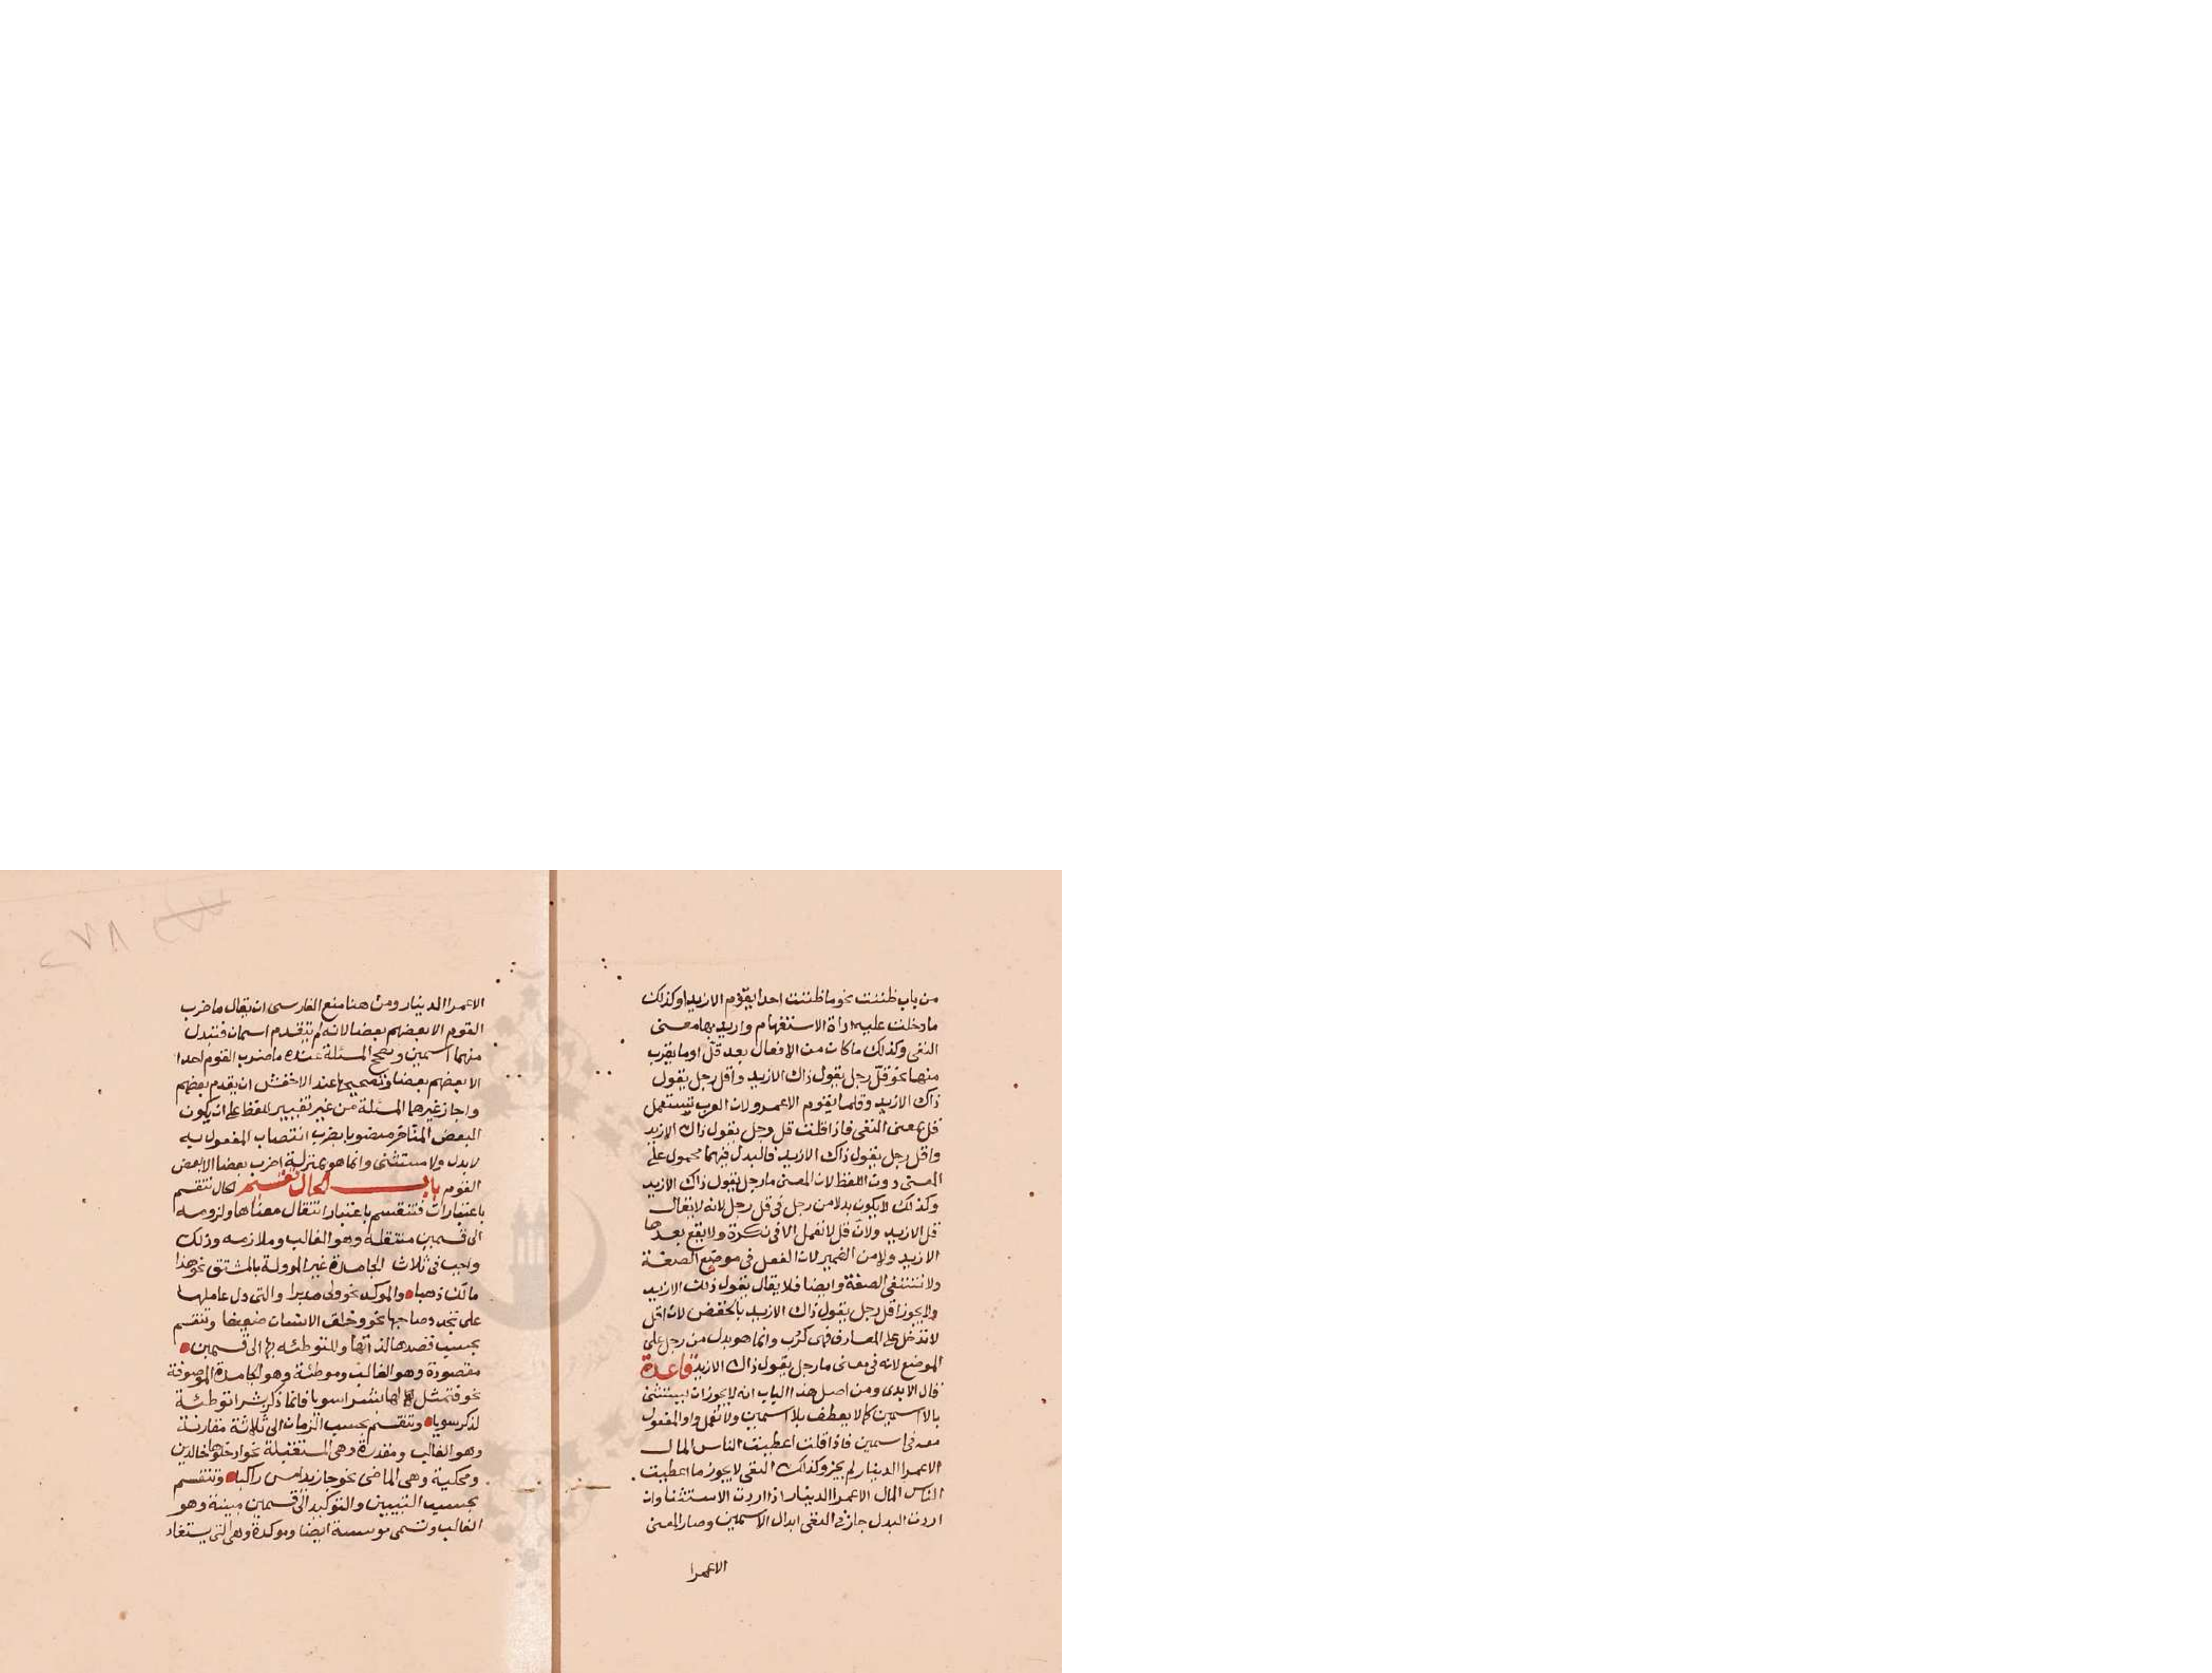 من باب ظننت نحو ما ظننت احدا يقوم الا زيدا وكذلك
ما دخلت عليه اداة الاستفهام واريد بها معنى
النفى وكذلك ما كان من الافعال بعد قلّ او ما يقرب
منها نحو قلّ رجل يقول ذاك الا زيد واقل رجل يقول
ذاك الا زيد وقلما يقوم الا عمرو لان العرب تستعمل
قل بمعنى النفى فاذا قلت قل رجل يقول ذاك الا زيد
واقل رجل يقول ذاك الا زيد فالبدل فيهما محمول على
المعنى دون اللفظ لان المعنى ما رجل يقول ذاك الا زيد
وكذلك لا يكون بدلا من رجل فى قل رجل لانه لا يقال
قل الا زيد ولان قل لا تعمل الا فى نكرة ولا يقع بعدها
الا زيد ولا من الضمير لان الفعل فى موضع الصفة
ولا تنتفى الصفة وايضا فلا يقال يقول ذلك الا زيد
ولا يجوز اقل رجل يقول ذاك الا زيد بالخفض لان اقل
لا تدخل على المعارف فهى كرُب وانما هو بدل من رجل على
الموضع لانه فى معنى ما رجل يقول ذاك الا زيد قاعدة
قال الابدى ومن اصل هذا الباب انه لا يجوز ان يستثنى
بالا اسمين كما لا يعطف بلا اسمين ولا تعمل واو المفعول
معه فى اسمين فاذا قلت اعطيت الناس المال
الا عمرا الدينار لم يجز وكذلك النفى لا يجوز ما اعطيت
الناس المال الا عمرا الدينار اذا اردت الاستثنا وان
اردت البدل جاز فى النفى ابدال الاسمين وصار المعنى
الا عمرا
الا عمرا الدينار ومن هنا منع الفارسى ان يقال ما ضرب
القوم الا بعضهم بعضا لانه لم يتقدم اسمان فتبدل
منهما اسمين وتصحح المسئلة عنده ما ضرب القوم احدا
الا بعضهم بعضا وتصحيحها عند الاخفش ان يقدم بعضهم
واجاز غيرهما المسئلة من غير تغيير للفظ على ان يكون
البعض المتاخر منصوبا بضرب انتصاب المفعول به
لا بدل ولا مستثنى وانما هو بمنزلة اضرب بعضا الا بعض
القوم باب الحال تقسيم الحال تنقسم
باعتبارات فتنقسم باعتبار انتقال معناها ولزومه
الى قسمين منتقلة وهو الغالب وملازمه وذلك
واجب فى ثلاث الجامدة غير المووله بالمشتق نحو هذا
مالك ذهبا والموكد نحو ولى مدبرا والتى دل عاملها
على تجدد صاحبها نحو وخلق الانسان ضعيفا وتنقسم
بحسب قصدها لذاتها وللتوطئه بها الى قسمين
مقصودة وهو الغالب وموطئة وهو الجامدة الموصوفة
نحو فتمثل لها بشرا سويا فانما ذكر بشرا توطئة
لذكر سويا وتنقسم بحسب الزمان الى ثلاثة مقارنة
وهو الغالب ومقدرة وهى المستقبلة نحو ادخلوها خالدين
ومحكية وهى الماضى نحو جا زيد امس راكبا وتنقسم
بحسب التبيين والتوكيد الى قسمين مبينة وهو
الغالب وتسمى موسسة ايضا وموكدة وهى التى يستفاد